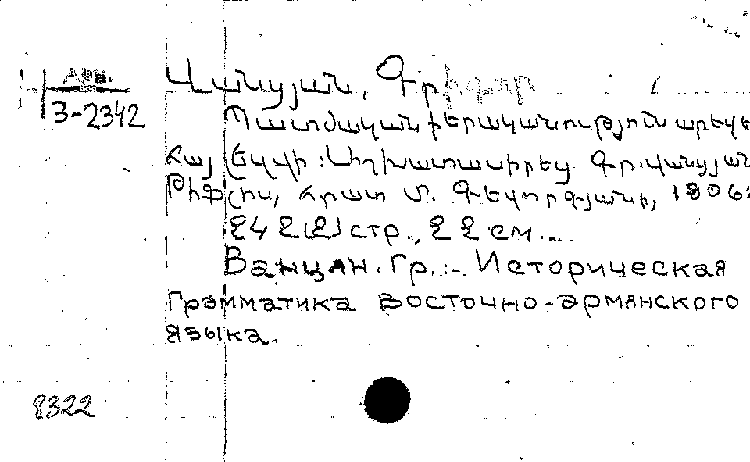 Արև.
3-2342
Վանցյան, Գրիգոր
Պատմական քերականություն արևել
հայ լեզվի: Աշխատասիրեց Գր. Վանցյան
Թիֆլիս, հրատ Մ.
242 (2) стр., 22 см.
Ванцян. Гр. :- Историческая
грамматика восточно-армянского
языка.
8322